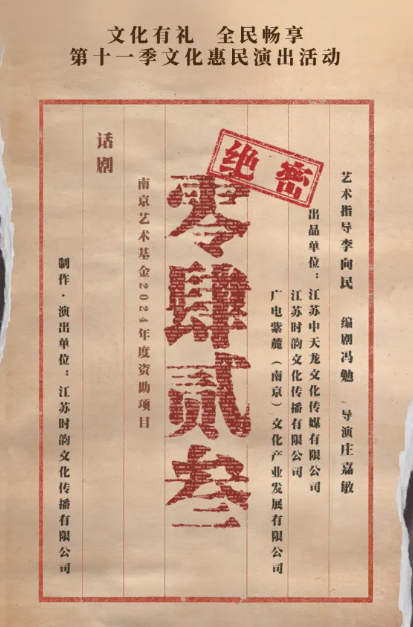 文化有礼 全民畅享
第十一季文化惠民演出活动
艺术指导李向民 编剧冯勉 导演庄嘉敏
出品单位：江苏中天龙文化传媒有限公司
江苏时韵文化传播有限公司
广电紫麓（南京）文化产业发展有限公司
绝密
零肆贰叁
南京艺术基金2024年度资助项目
话剧
制作·演出单位：江苏时韵文化传播有限公司